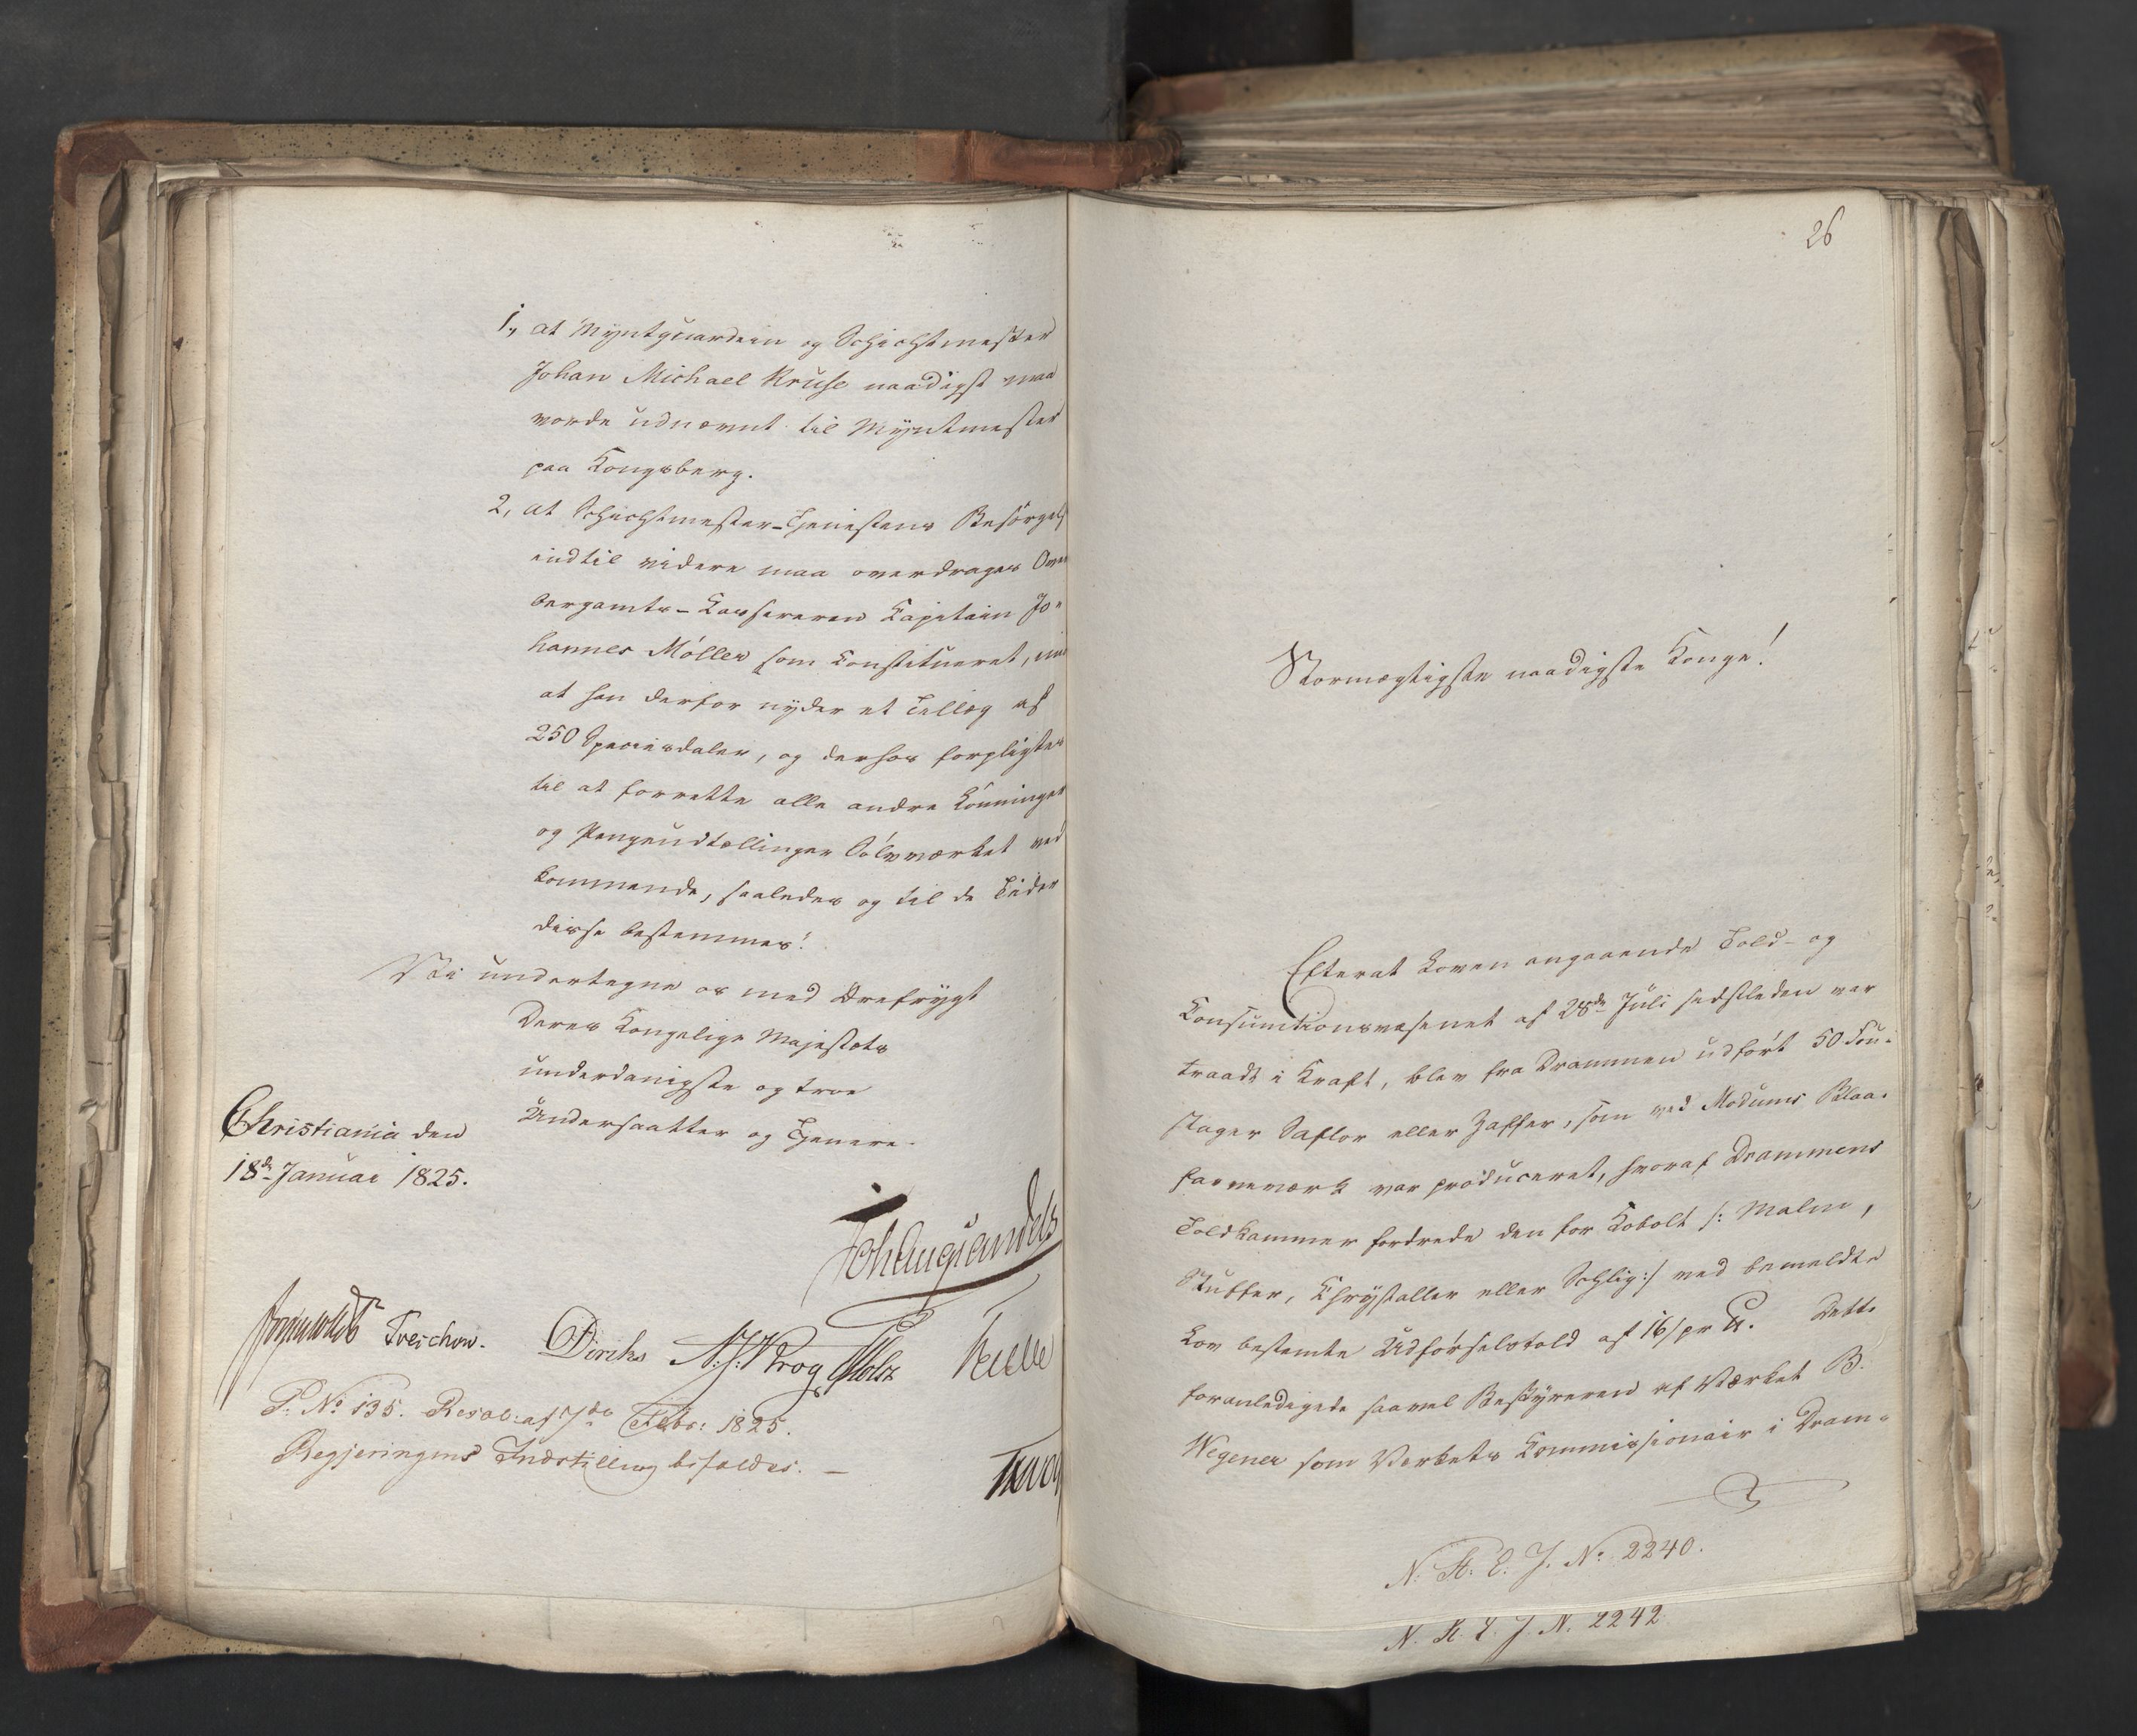 1., at Myntguardein og Schichtmester
Johan Michael Kruse naadigst maa
vorde udnævnt til Myntmester
paa Kongsberg.
2, at Schichtmester-Tjenestens Besørgels
indtil videre maa overdrages Over
bergamts-Kassereren Kapitain Jo-
hannes Møller som Constitueret, mod
at han derfor nyder et Tillæg af
250 Speciesdaler, og derhos forpligtes
til at forrette alle andre Lønninger
og Pengeudtællinger Sølvværket ved
kommende, saaledes og til de Tider
disse bestemmes.
Vi undertegne os med Ærefrygt
Deres Kongelige Majestæts
underdanigste og troe
Undersaatter og Tjenere.
Christiania den
18de Januar 1825.
Joh Aug Sandels
Treschow. Diriks N.J. Krog Holst
P. No 135. Resol: af 7de Febr: 1825.
Regjeringens Indstilling bifaldes. —
26
Stormægtigste naadigste Konge!
Efterat Loven angaaende Told- og
Consumtionsvæsenet af 28de Juli sidstleden var
traadt i Kraft, blev fra Drammen udført 50 Fu-
stager Saflor eller Zaffer, som ved Modums Blaa-
farveværk var produceret, hvoraf Drammens
Toldkammer fordrede den for Kobolt /: Malm,
Stuffer, Chrystaller eller Schlig:/ ved bemeldte
Lov bestemte Udførselstold af 16 / pr ℔. Dette
foranledigede saavel Bestyreren af Værket B.
Wegener som Værkets Commissionair i Dram-
N. R. E. J. No 2240.
N. R. E. J. N. 2242